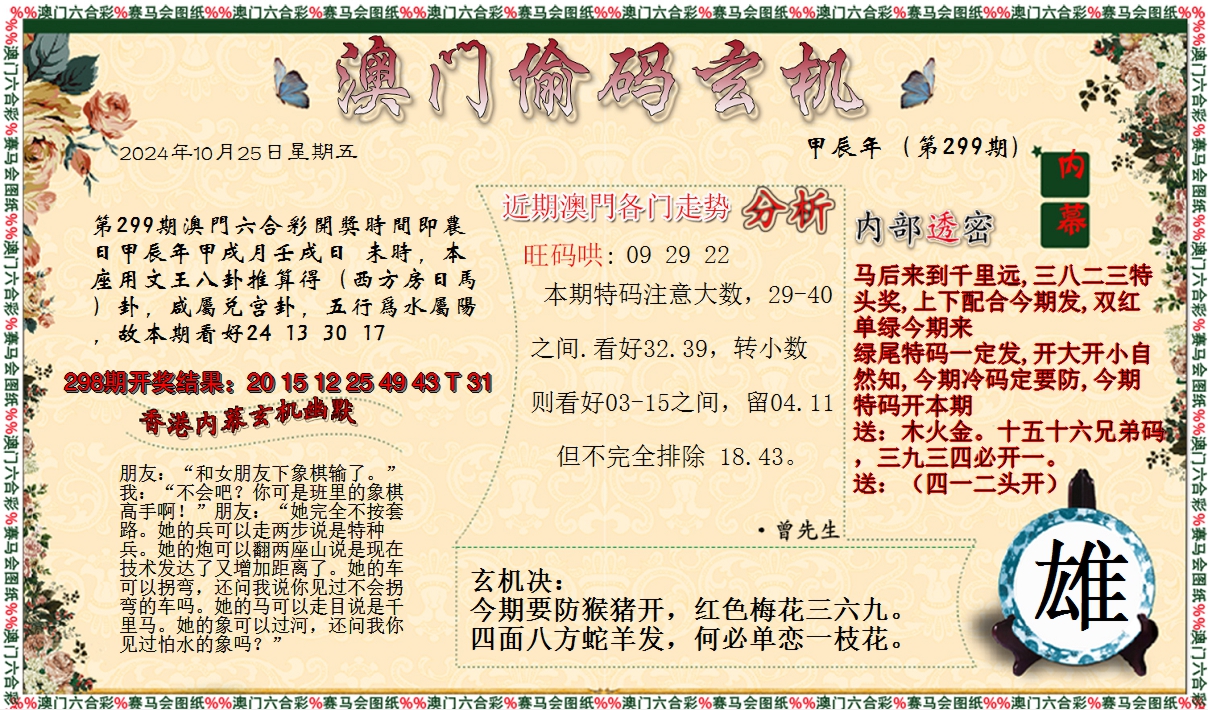 %%澳门六合彩%赛马会图纸%%澳门六合彩%赛马会图纸%%澳门六合彩%赛马会图纸%%澳门六合彩%赛马会图纸%%澳门六合彩%赛马会图纸%%澳门六合彩%赛马会图纸%%
澳门偷码玄机
2024年10月25日星期五
甲辰年（第299期）
内幕
第299期澳門六合彩開獎時間即農
日甲辰年甲戌月壬戌日 未時，本
座用文王八卦推算得（西方房日馬
）卦，咸屬兑宫卦，五行爲水屬陽
，故本期看好24 13 30 17
298期开奖结果：20 15 12 25 49 43 T 31
香港内幕玄机幽默
朋友：“和女朋友下象棋输了。”
我：“不会吧？你可是班里的象棋
高手啊！”朋友：“她完全不按套
路。她的兵可以走两步说是特种
兵。她的炮可以翻两座山说是现在
技术发达了又增加距离了。她的车
可以拐弯，还问我说你见过不会拐
弯的车吗。她的马可以走目说是千
里马。她的象可以过河，还问我你
见过怕水的象吗？”
近期澳門各门走势 分析
旺码哄: 09 29 22
本期特码注意大数，29-40
之间.看好32.39，转小数
则看好03-15之间，留04.11
但不完全排除 18.43。
·曾先生
内部透密
马后来到千里远,三八二三特
头奖,上下配合今期发,双红
单绿今期来
绿尾特码一定发,开大开小自
然知,今期冷码定要防,今期
特码开本期
送：木火金。十五十六兄弟码
，三九三四必开一。
送：（四一二头开）
玄机决：
今期要防猴猪开，红色梅花三六九。
四面八方蛇羊发，何必单恋一枝花。
雄
%%澳门六合彩%赛马会图纸%%澳门六合彩%赛马会图纸%%澳门六合彩%赛马会图纸%%澳门六合彩%赛马会图纸%%澳门六合彩%赛马会图纸%%澳门六合彩%赛马会图纸%%